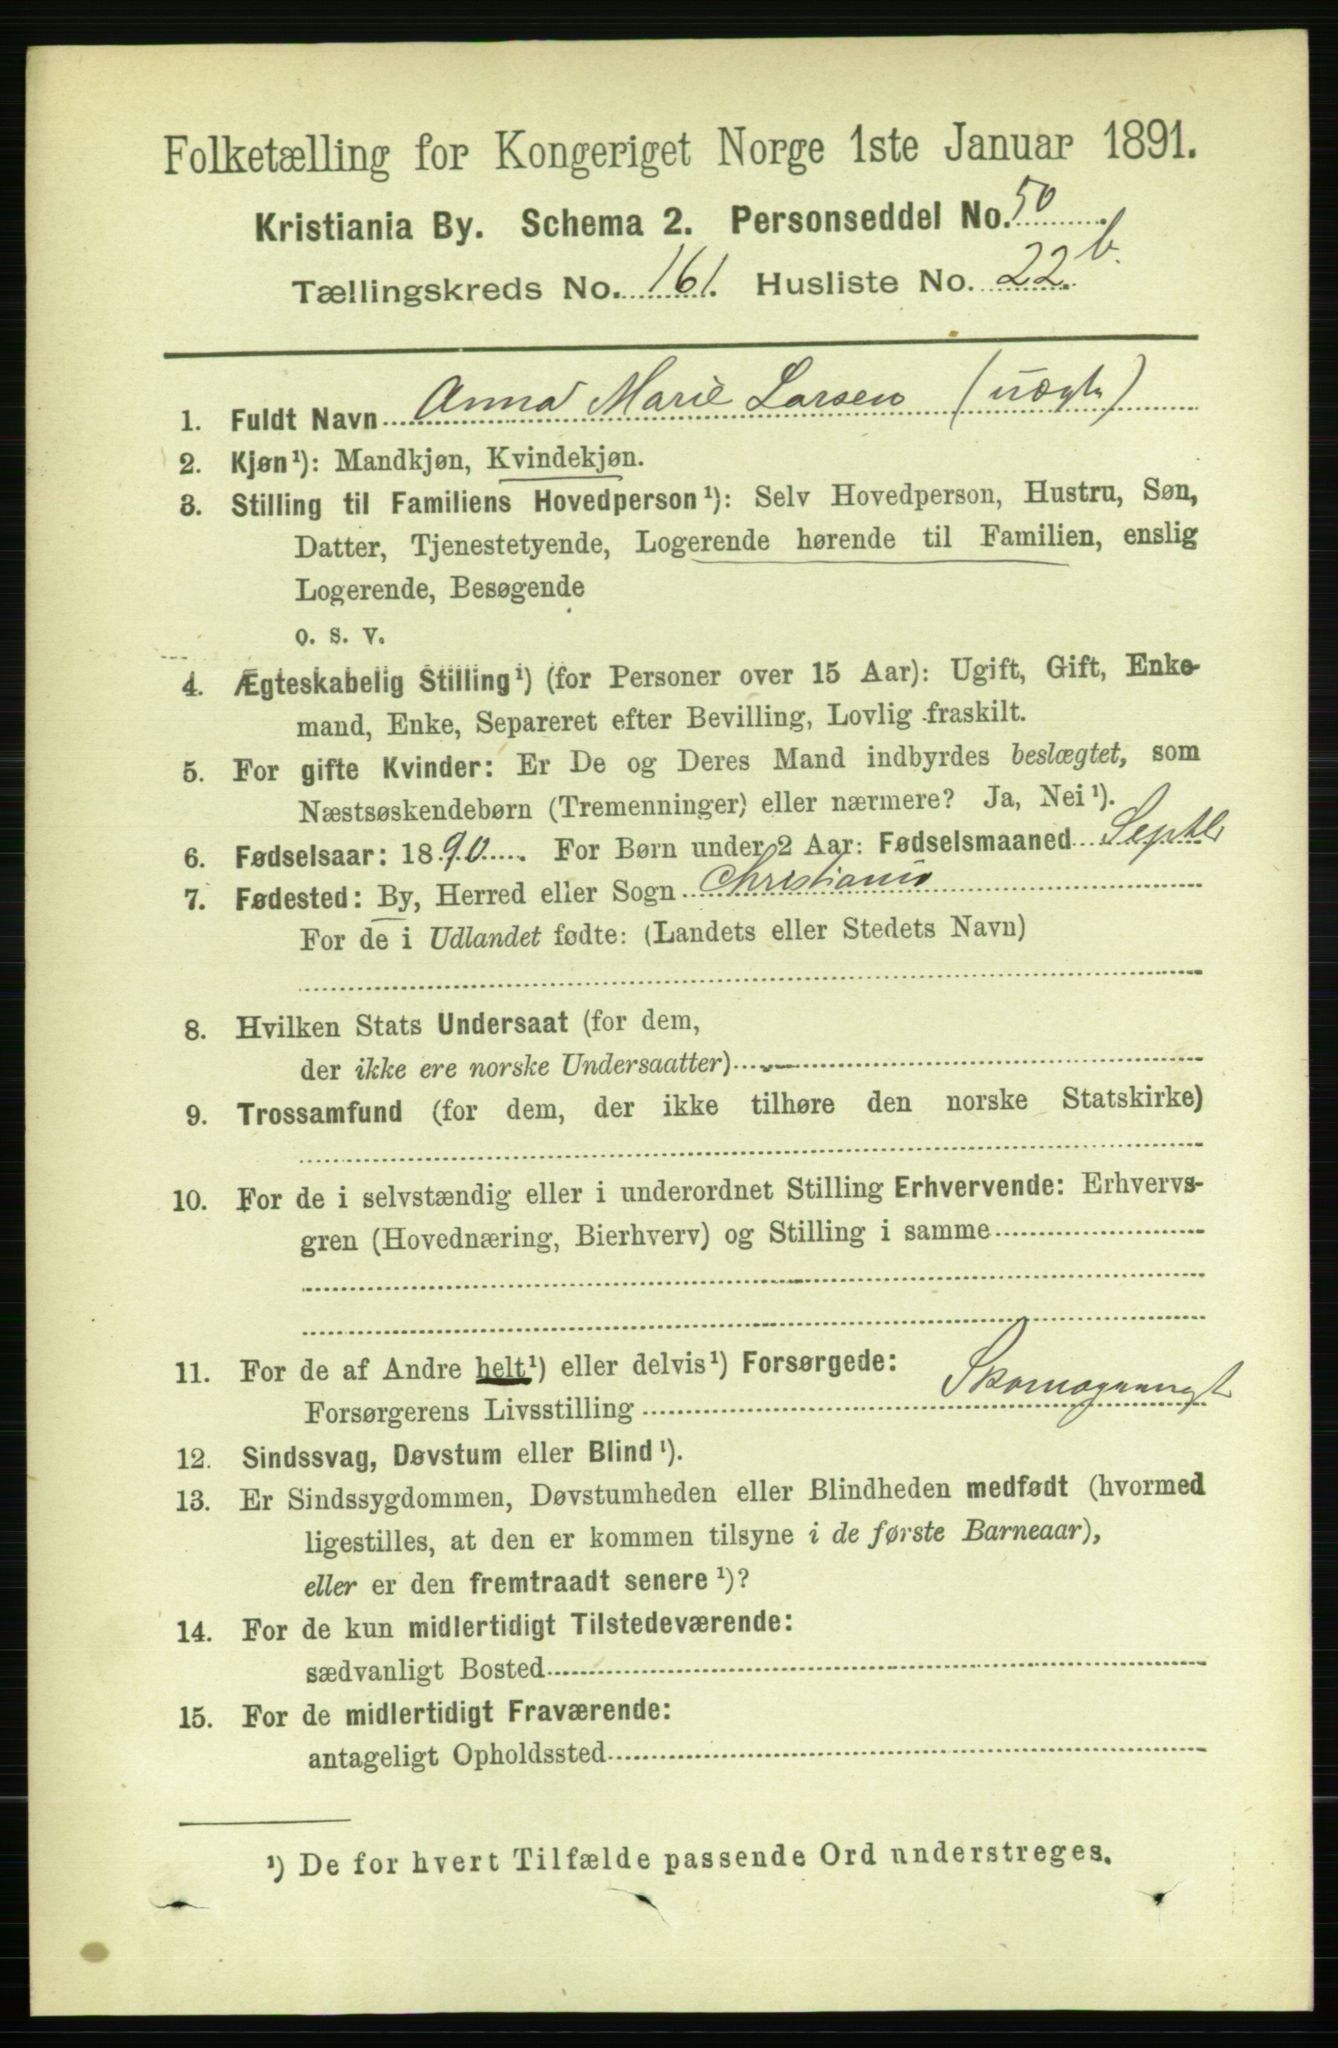 Folketælling for Kongeriget Norge 1ste Januar 1891.
Kristiania By. Schema 2. Personseddel No. 50
Tællingskreds No. 161. Husliste No. 22.b.
1. Fuldt Navn Anna Marie Larsen (uægte)
2. Kjøn¹): Mandkjøn, Kvindekjøn.
3. Stilling til Familiens Hovedperson¹): Selv Hovedperson, Hustru, Søn,
Datter, Tjenestetyende, Logerende hørende til Familien, enslig
Logerende, Besøgende
o. s. v.
4. Ægteskabelig Stilling¹) (for Personer over 15 Aar): Ugift, Gift, Enke-
mand, Enke, Separeret efter Bevilling, Lovlig fraskilt.
5. For gifte Kvinder: Er De og Deres Mand indbyrdes beslægtet, som
Næstsøskendebørn (Tremenninger) eller nærmere? Ja, Nei¹).
6. Fødselsaar: 1890. For Børn under 2 Aar: Fødselsmaaned Septb
7. Fødested: By, Herred eller Sogn Christiania
For de i Udlandet fødte: (Landets eller Stedets Navn)
8. Hvilken Stats Undersaat (for dem,
der ikke ere norske Undersaatter)
9. Trossamfund (for dem, der ikke tilhøre den norske Statskirke)
10. For de i selvstændig eller i underordnet Stilling Erhvervende: Erhvervs-
gren (Hovednæring, Bierhverv) og Stilling i samme
11. For de af Andre helt¹) eller delvis¹) Forsørgede:
Forsørgerens Livsstilling
12. Sindssvag, Døvstum eller Blind¹).
13. Er Sindssygdommen, Døvstumheden eller Blindheden medfødt (hvormed
ligestilles, at den er kommen tilsyne i de første Barneaar),
eller er den fremtraadt senere¹)?
14. For de kun midlertidigt Tilstedeværende:
sædvanligt Bosted
15. For de midlertidigt Fraværende:
antageligt Opholdssted
¹) De for hvert Tilfælde passende Ord understreges.